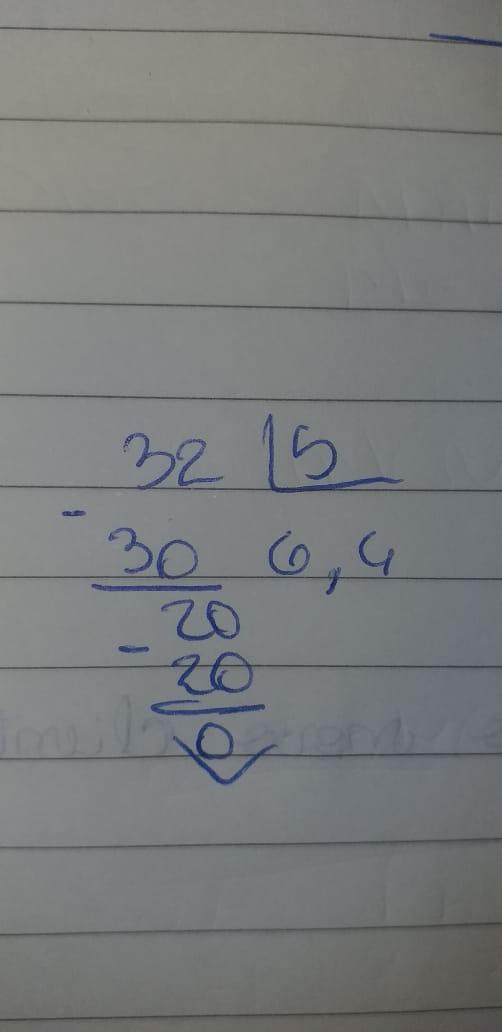 32 | 5
- 30 6,4
20
- 20
0